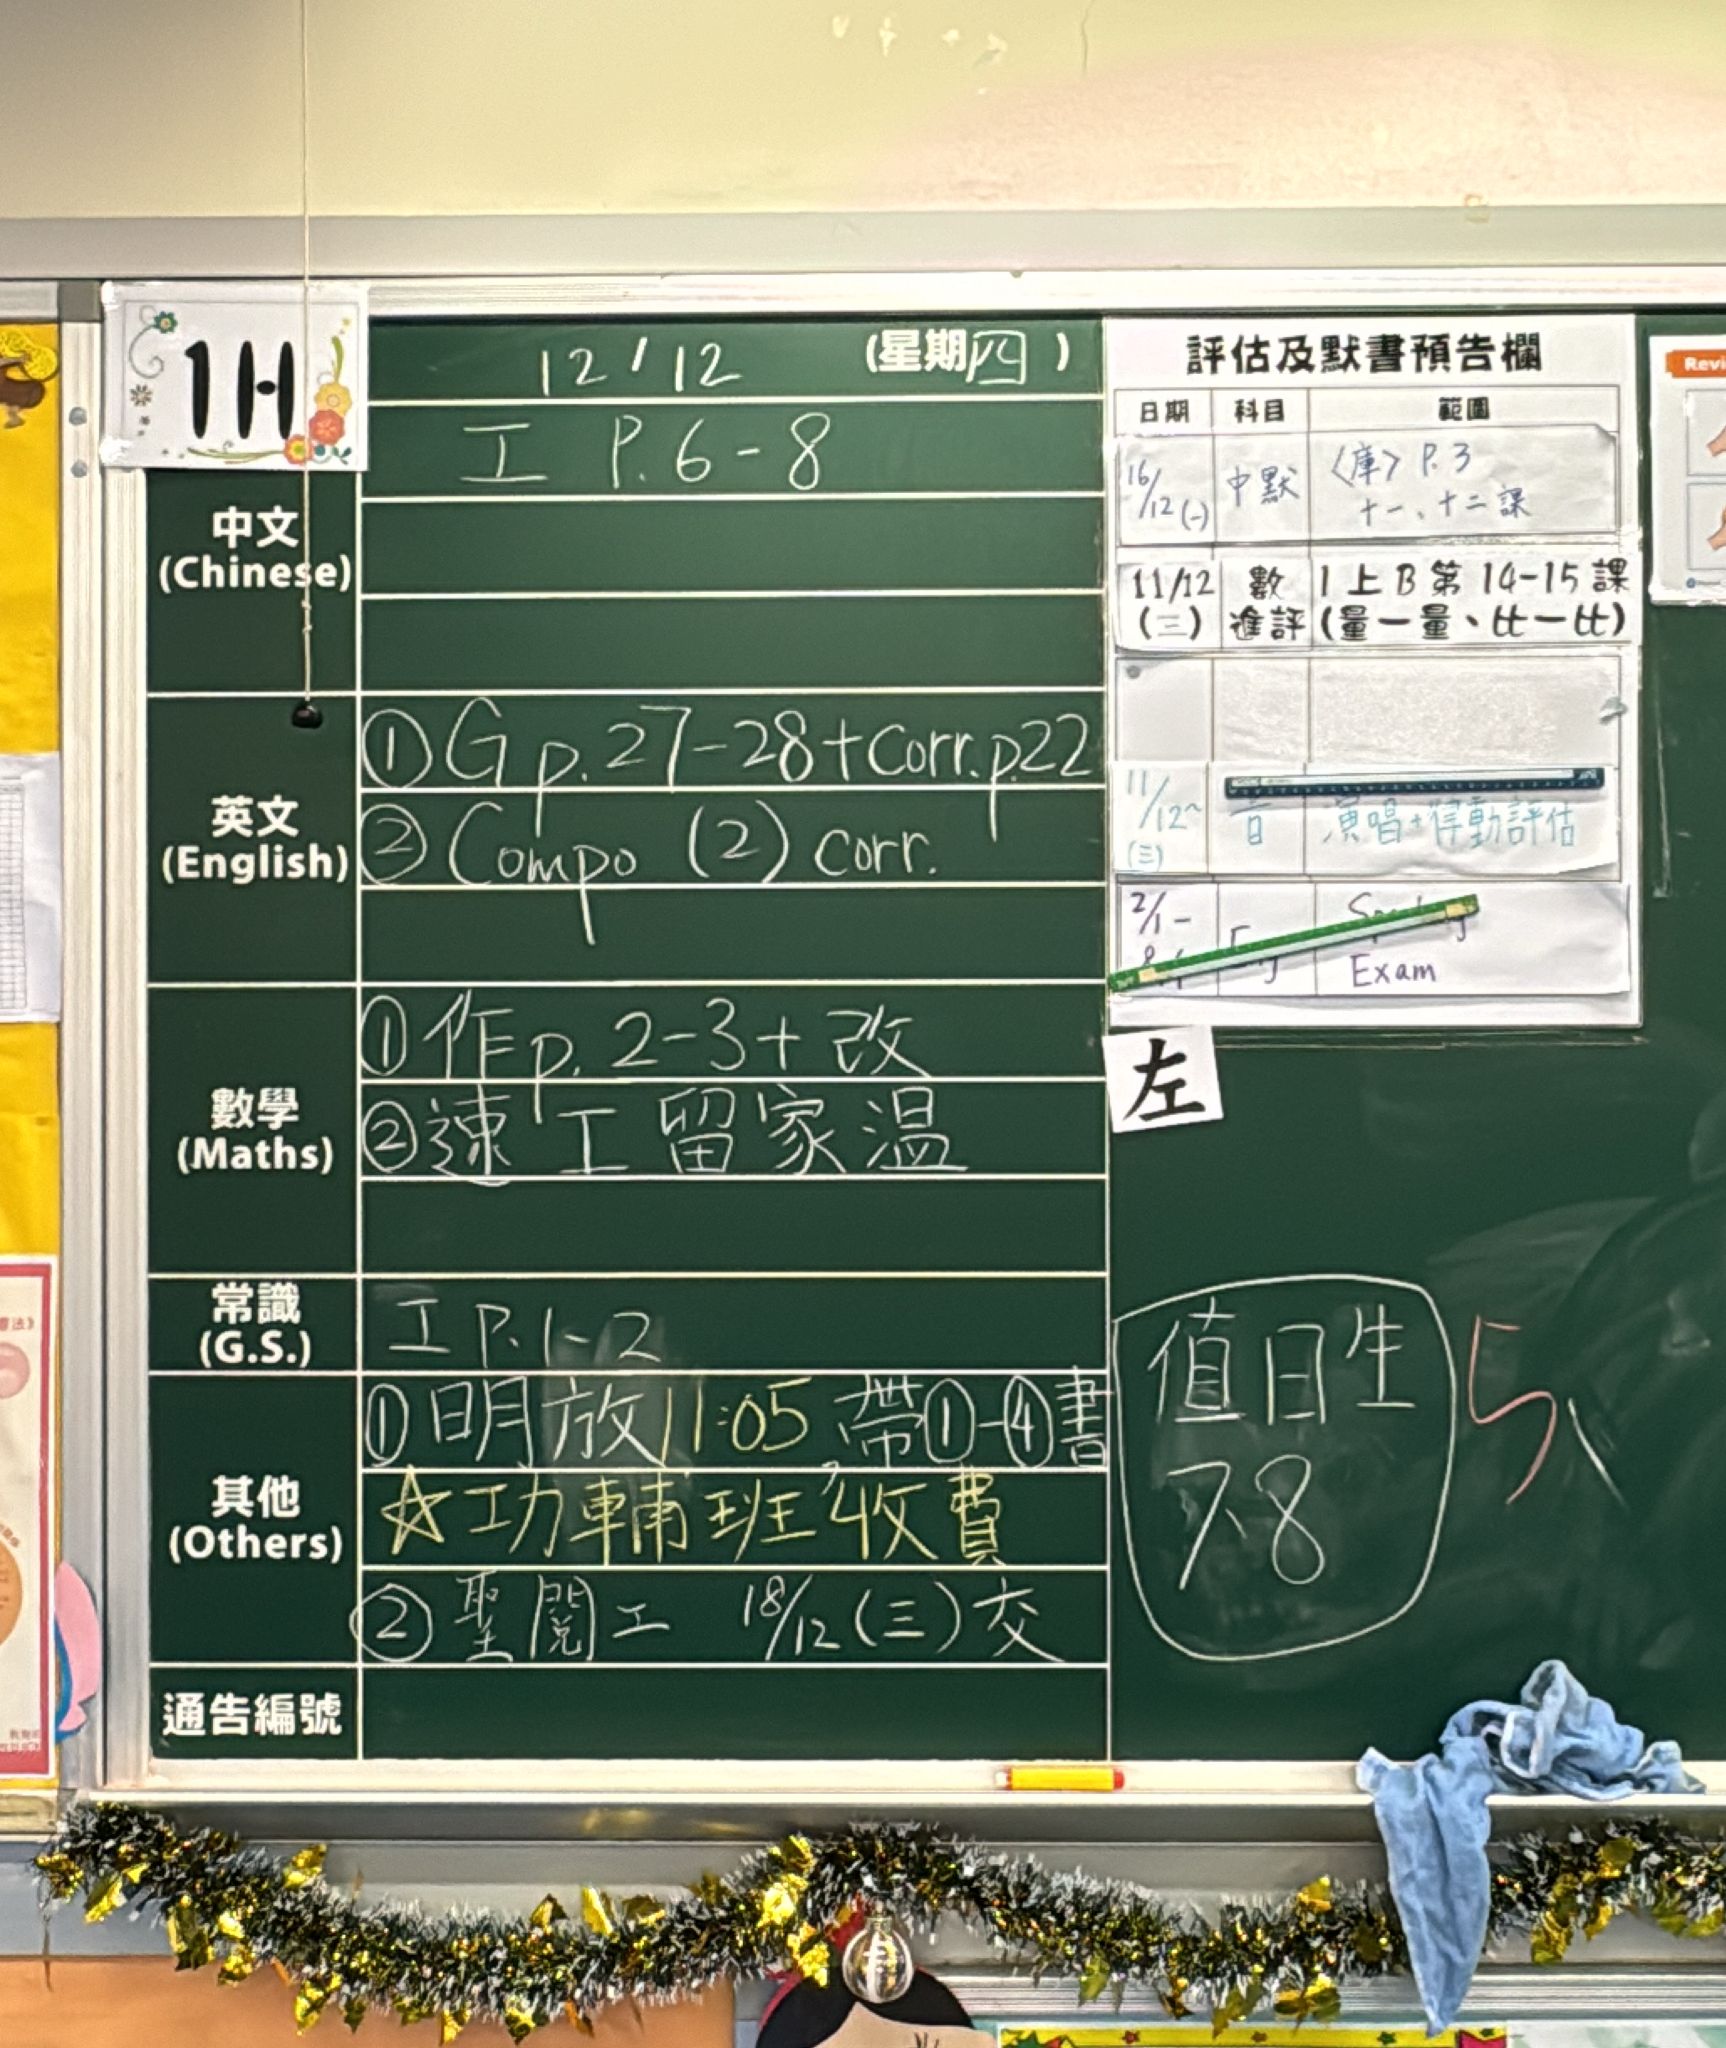 1H
12/12 (星期四)
工 P.6-8
中文
(Chinese)
英文
(English)
①G p.27-28+corr.p.22
②Compo (2) corr.
數學
(Maths)
①作p.2-3+改
②速工留家温
常識
(G.S.)
工 P.1-2
其他
(Others)
①明放11:05,帶①-④書
☆功輔班收費
②聖閱工 18/12(三)交
通告編號
評估及默書預告欄
日期 科目 範圍
16/12(一) 中默 〈庫〉P.3
十一、十二課
11/12 數 1上B第14-15課
(三) 進評 (量一量、比一比)
11/12~ 音 演唱+律動評估
(三)
2/1-
Exam
左
值日生
7.8
5
Revi